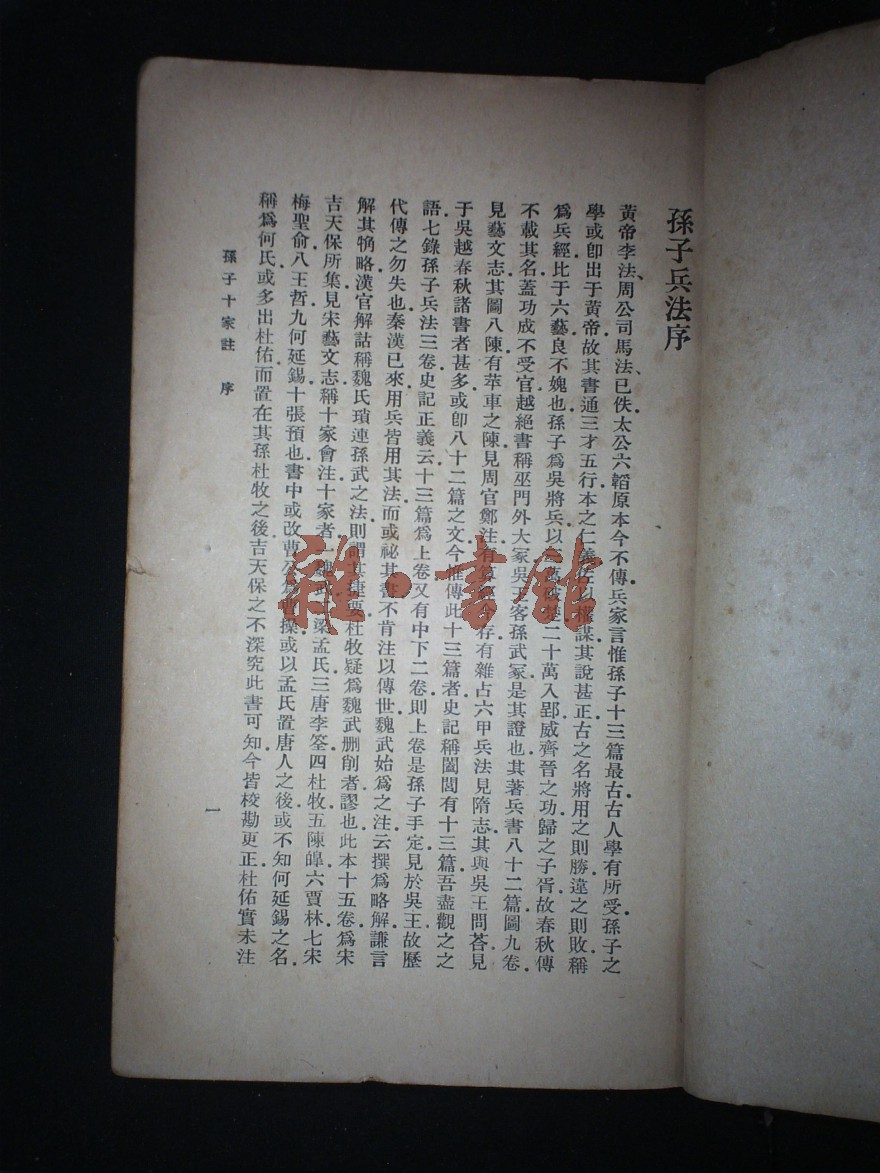 孫子兵法序
黃帝李法、周公司馬法已佚、太公六韜原本今不傳兵家言惟孫子十三篇最古古人學有所受孫子之
學或卽出于黃帝故其書通三才五行本之仁義佐以權謀其說甚正古之名將用之則勝違之則敗稱
爲兵經比于六藝良不媿也孫子爲吳將兵以三萬破楚二十萬入郢威齊晉之功歸之子胥故春秋傳
不載其名蓋功成不受官越絕書稱巫門外大冢吳王客孫武冢是其證也其著兵書八十二篇圖九卷
見藝文志其圖八陳有苹車之陳見周官鄭注有算經今存有雜占六甲兵法見隋志其與吳王問荅見
于吳越春秋諸書者甚多或卽八十二篇之文今惟傳此十三篇者史記稱闔閭有十三篇吾盡觀之之
語七錄孫子兵法三卷史記正義云十三篇爲上卷又有中下二卷則上卷是孫子手定見於吳王故歷
代傳之勿失也秦漢已來用兵皆用其法而或祕其書不肯注以傳世魏武始爲之注云撰爲略解謙言
解其觕略漢官解詁稱魏氏瑣連孫武之法則謂其捷要杜牧疑爲魏武删削者謬也此本十五卷爲宋
吉天保所集見宋藝文志稱十家會注十家者一魏武二梁孟氏三唐李筌四杜牧五陳皞六賈林七宋
梅聖俞八王晳九何延錫十張預也書中或改曹公爲曹操或以孟氏置唐人之後或不知何延錫之名
稱爲何氏或多出杜佑而置在其孫杜牧之後吉天保之不深究此書可知今皆校勘更正杜佑實未注
孫子十家註　序
一
雅·書館